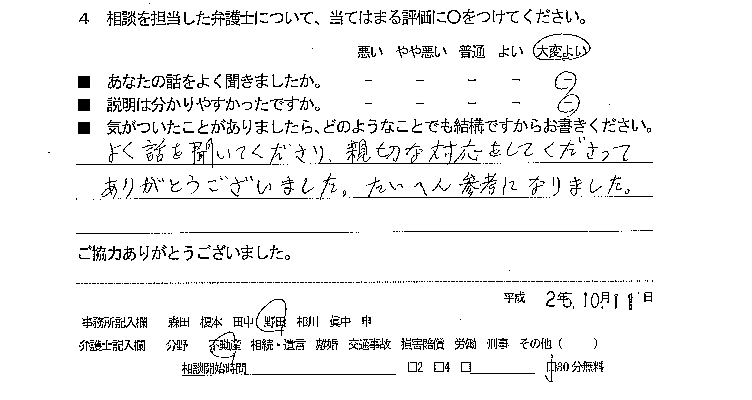 4 相談を担当した弁護士について、当てはまる評価に〇をつけてください。
悪い やや悪い 普通 よい 大変よい
■ あなたの話をよく聞きましたか。 － － － － －
■ 説明は分かりやすかったですか。 － － － － －
■ 気がついたことがありましたら、どのようなことでも結構ですからお書きください。
よく話を聞いてくださり、親切な対応をしてくださって
ありがとうございました。たいへん参考になりました。
ご協力ありがとうございました。
平成 25年 10月 11日
事務所記入欄 森田 榎本 田中 野田 相川 眞中 申
弁護士記入欄 分野 不動産 相続・遺言 離婚 交通事故 損害賠償 労働 刑事 その他（ ）
相談開始時間 □2 □4 □ □30分無料